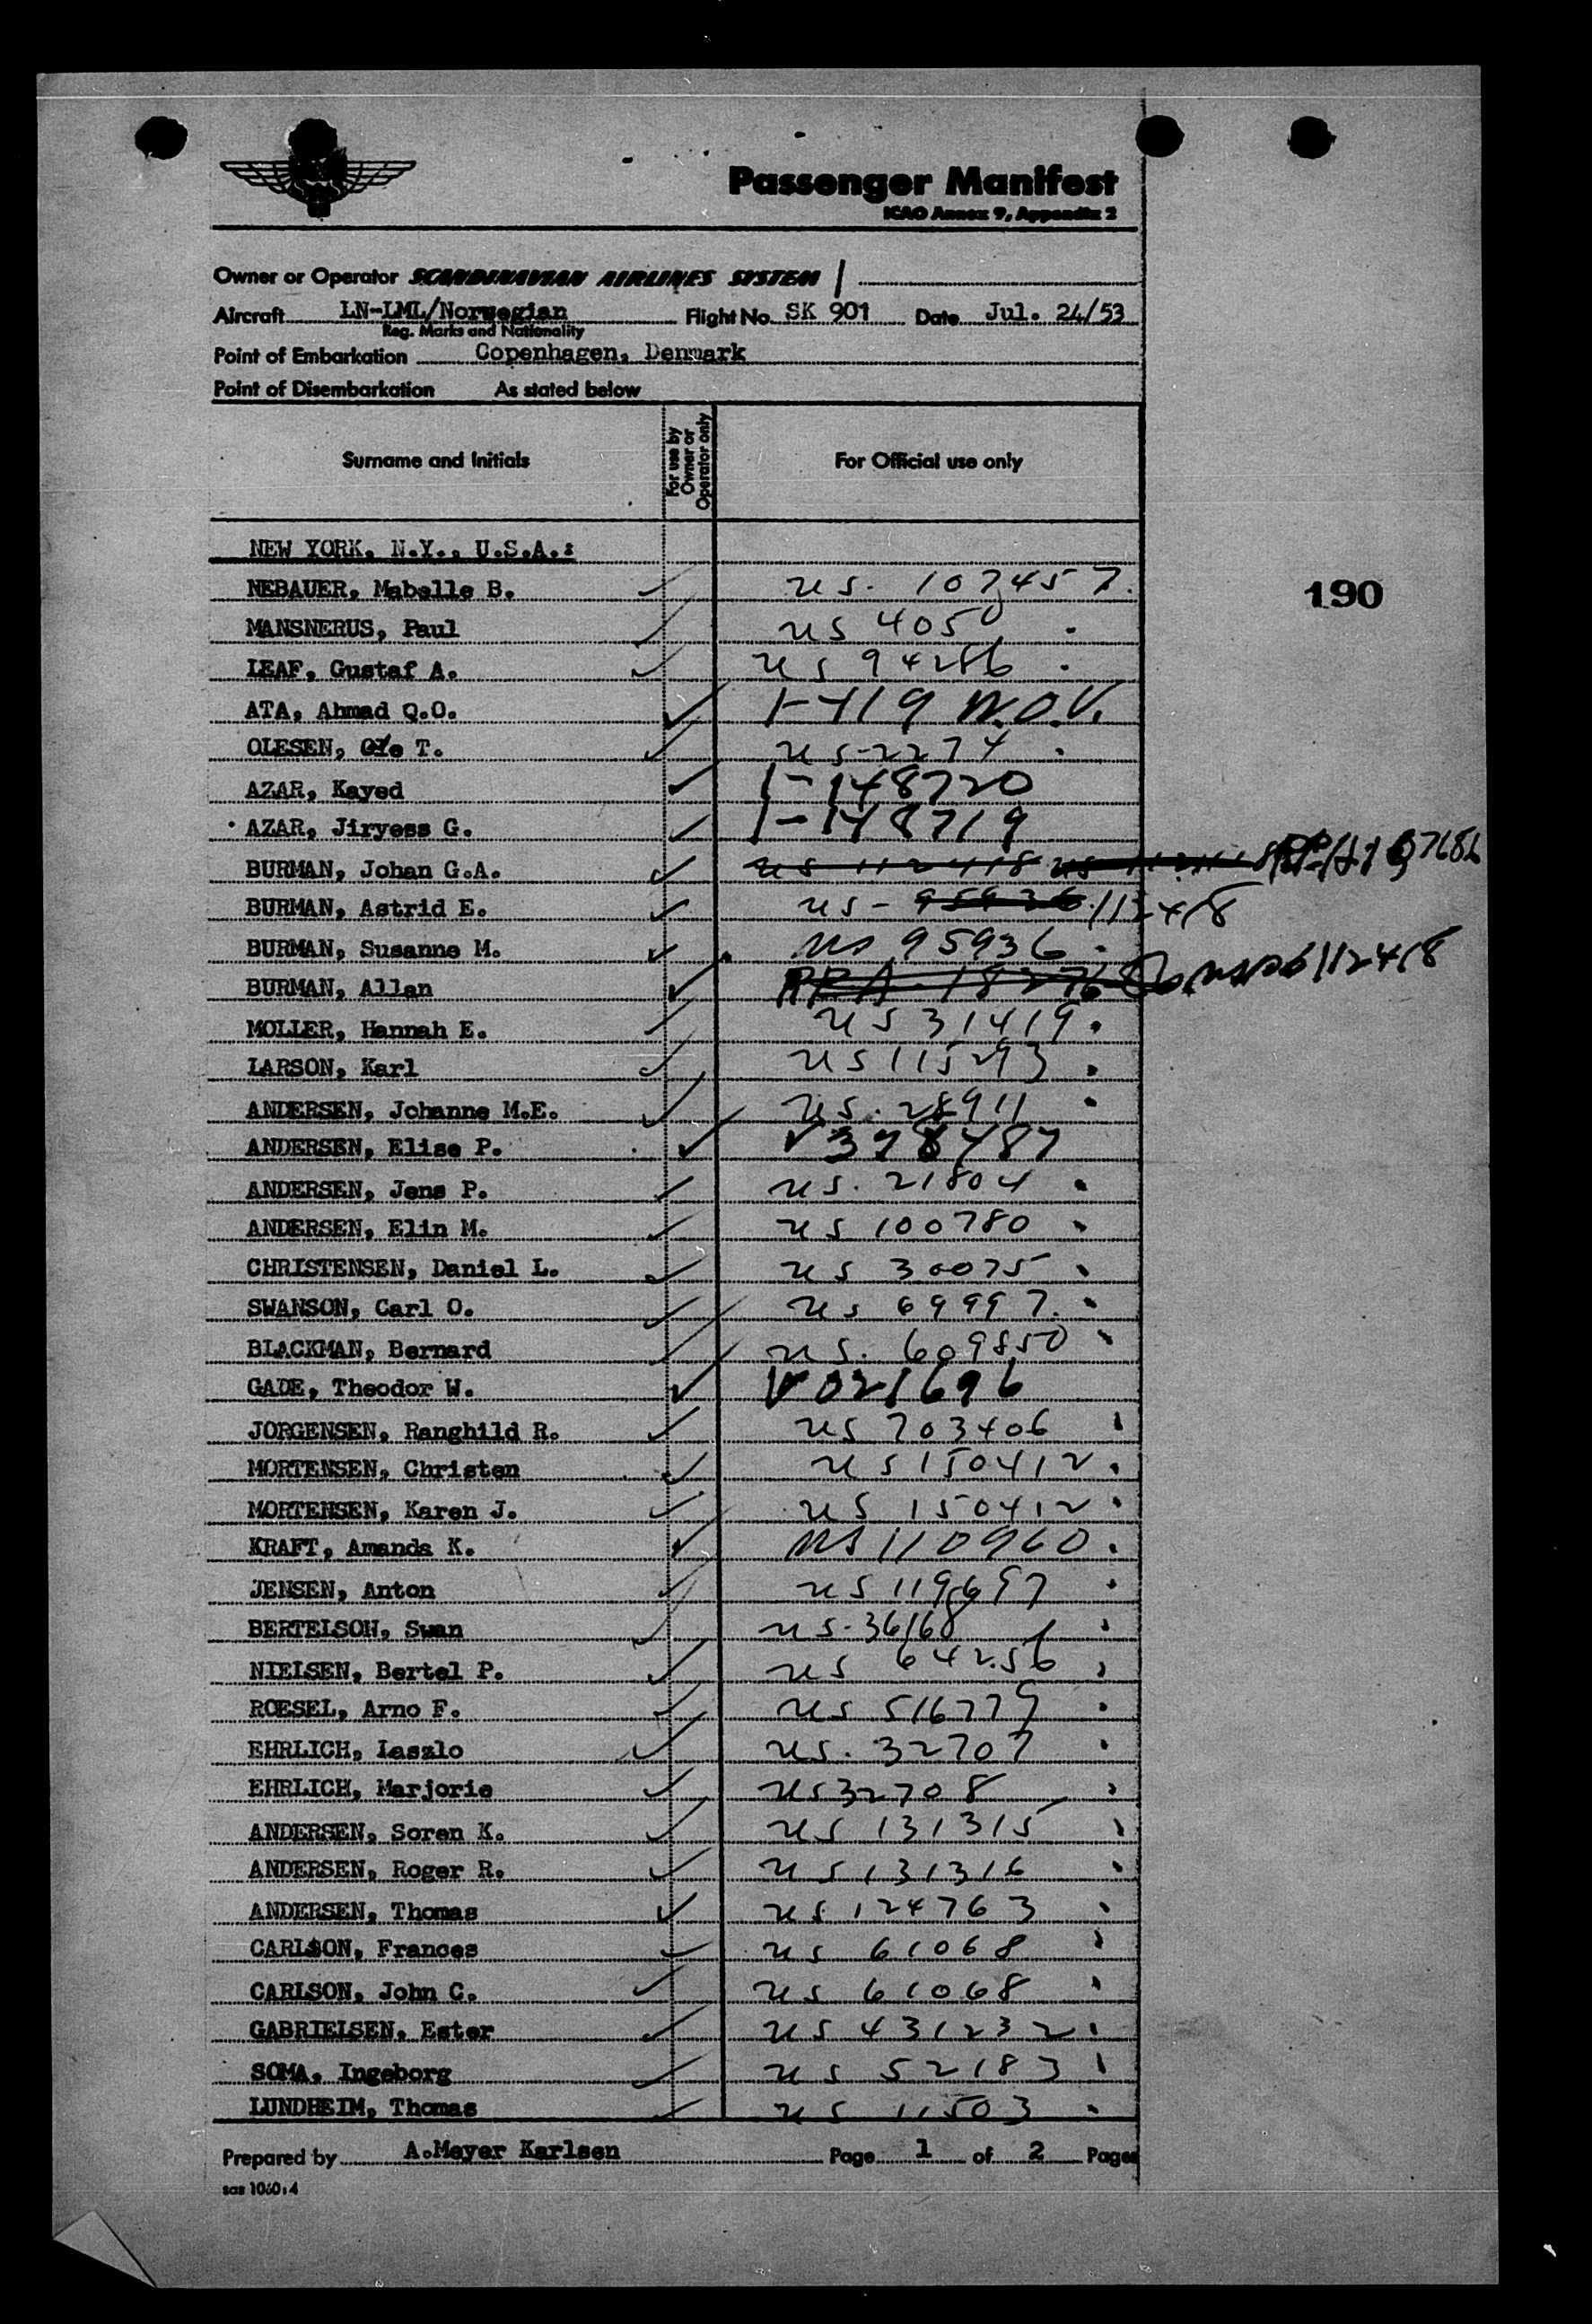 Passenger Manifest
ICAO Annex 9, Appendix 2
Owner or Operator SCANDINAVIAN AIRLINES SYSTEM
Aircraft LN-LML/Norwegian Flight No. SK 901 Date Jul. 24/53
Reg. Marks and Nationality
Point of Embarkation Copenhagen, Denmark
Point of Disembarkation As stated below
Surname and Initials For use by Owner or Operator only For Official use only
NEW YORK, N.Y., U.S.A.:
NEBAUER, Mabelle B. us. 107457.
190
MANSNERUS, Paul us 4050
LEAF, Gustaf A. us 94286
ATA, Ahmad Q.O. 1-419 W.O.V.
OLESEN, Ole T. us-2274
AZAR, Kayed 1-148720
AZAR, Jiryess G. 1-148719
BURMAN, Johan G.A. us 112418
BURMAN, Astrid E. us - 95936 112418
BURMAN, Susanne M. us 95936
BURMAN, Allan 112418
MOLLER, Hannah E. us 31419
LARSON, Karl us 115293
ANDERSEN, Johanne M.E. us. 28911
ANDERSEN, Elise P. V 398487
ANDERSEN, Jens P. us. 21804
ANDERSEN, Elin M. us 100780
CHRISTENSEN, Daniel L. us 30075
SWANSON, Carl O. us 69997.
BLACKMAN, Bernard us. 609850
GADE, Theodor W. V 021696
JORGENSEN, Ranghild R. us 703406
MORTENSEN, Christen us 150412
MORTENSEN, Karen J. us 150412
KRAFT, Amanda K. us 110960
JENSEN, Anton us 119697
BERTELSON, Swan us. 36168
NIELSEN, Bertel P. us 64256
ROESEL, Arno F. us 516779
EHRLICH, Laszlo us. 32707
EHRLICH, Marjorie us 32708
ANDERSEN, Soren K. us 131315
ANDERSEN, Roger R. us 131316
ANDERSEN, Thomas us 124763
CARLSON, Frances us 61068
CARLSON, John C. us 61068
GABRIELSEN, Ester us 431232
SOMA, Ingeborg us 52183
LUNDHEIM, Thomas us 11503
Prepared by A.Meyer Karlsen Page 1 of 2 Pages
sas 1060:4